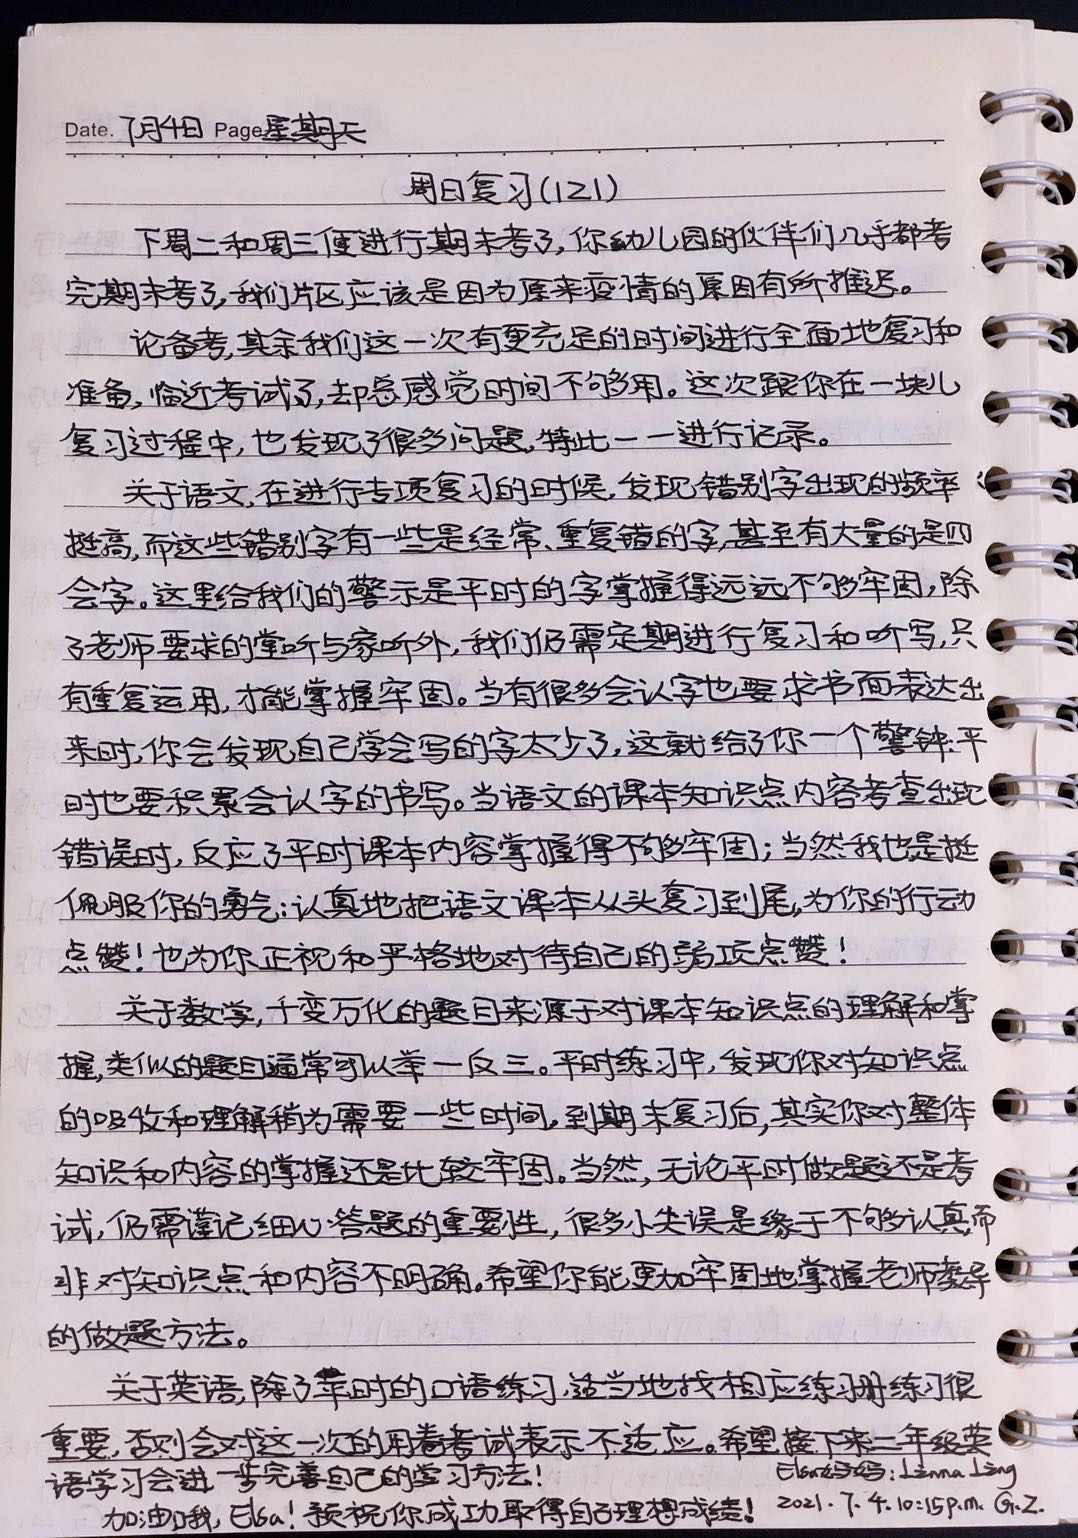 Date. 7月4日 Page 星期天
周日复习(121)
下周二和周三便进行期末考了,你幼儿园的伙伴们几乎都考
完期末考了,我们片区应该是因为原来疫情的原因有所推迟。
论备考,其余我们这一次有更充足的时间进行全面地复习和
准备,临近考试了,却总感觉时间不够用。这次跟你在一块儿
复习过程中,也发现了很多问题,特此一一进行记录。
关于语文,在进行专项复习的时候,发现错别字出现的频率
挺高,而这些错别字有一些是经常、重复错的字,甚至有大量的是四
会字。这里给我们的警示是平时的字掌握得远远不够牢固,除
了老师要求的堂听与家听外,我们仍需定期进行复习和听写,只
有重复运用,才能掌握牢固。当有很多会认字也要求书面表达出
来时,你会发现自己学会写的字太少了,这就给了你一个警钟:平
时也要积累会认字的书写。当语文的课本知识点内容考查出现
错误时,反应了平时课本内容掌握得不够牢固;当然我也是挺
佩服你的勇气:认真地把语文课本从头复习到尾,为你的行动
点赞!也为你正视和严格地对待自己的弱项点赞!
关于数学,千变万化的题目来源于对课本知识点的理解和掌
握,类似的题目通常可以举一反三。平时练习中,发现你对知识点
的吸收和理解稍为需要一些时间,到期末复习后,其实你对整体
知识和内容的掌握还是比较牢固。当然,无论平时做题还是考
试,仍需谨记细心答题的重要性,很多小失误是缘于不够认真,而
非对知识点和内容不明确。希望你能更加牢固地掌握老师教导
的做题方法。
关于英语,除了平时的口语练习,适当地找相应练习册练习很
重要,否则会对这一次的用卷考试表示不适应。希望接下来二年级英
语学习会进一步完善自己的学习方法!
Elsa妈妈:Linna Ling
加油哦,Elsa!预祝你成功取得自己理想成绩!
2021.7.4.10:15p.m. G.Z.